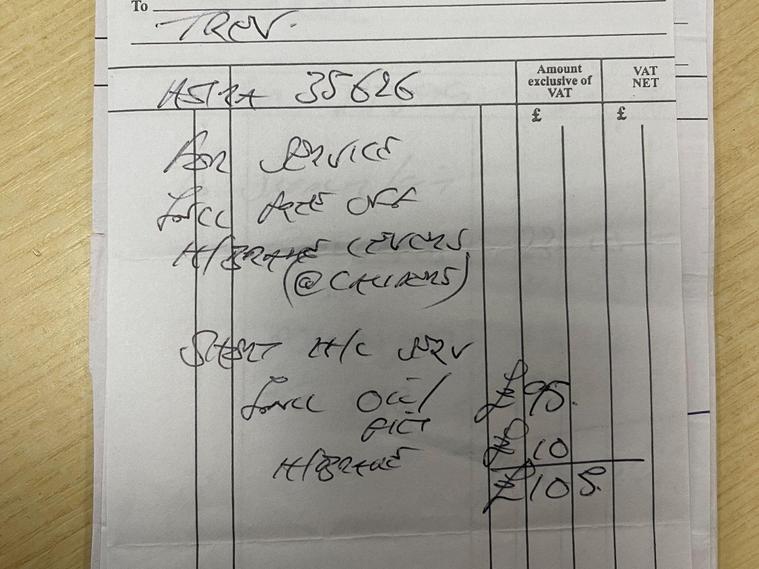 To
TREV.
ASTRA 35626
Amount exclusive of VAT
VAT NET
£ £
FOR SERVICE
OFF
H/BRAKE LEVERS
(@ CALIPERS)
START H/C SERV
OIL/ £ 95.
FILT
H/BRAKE 10
£ 105.